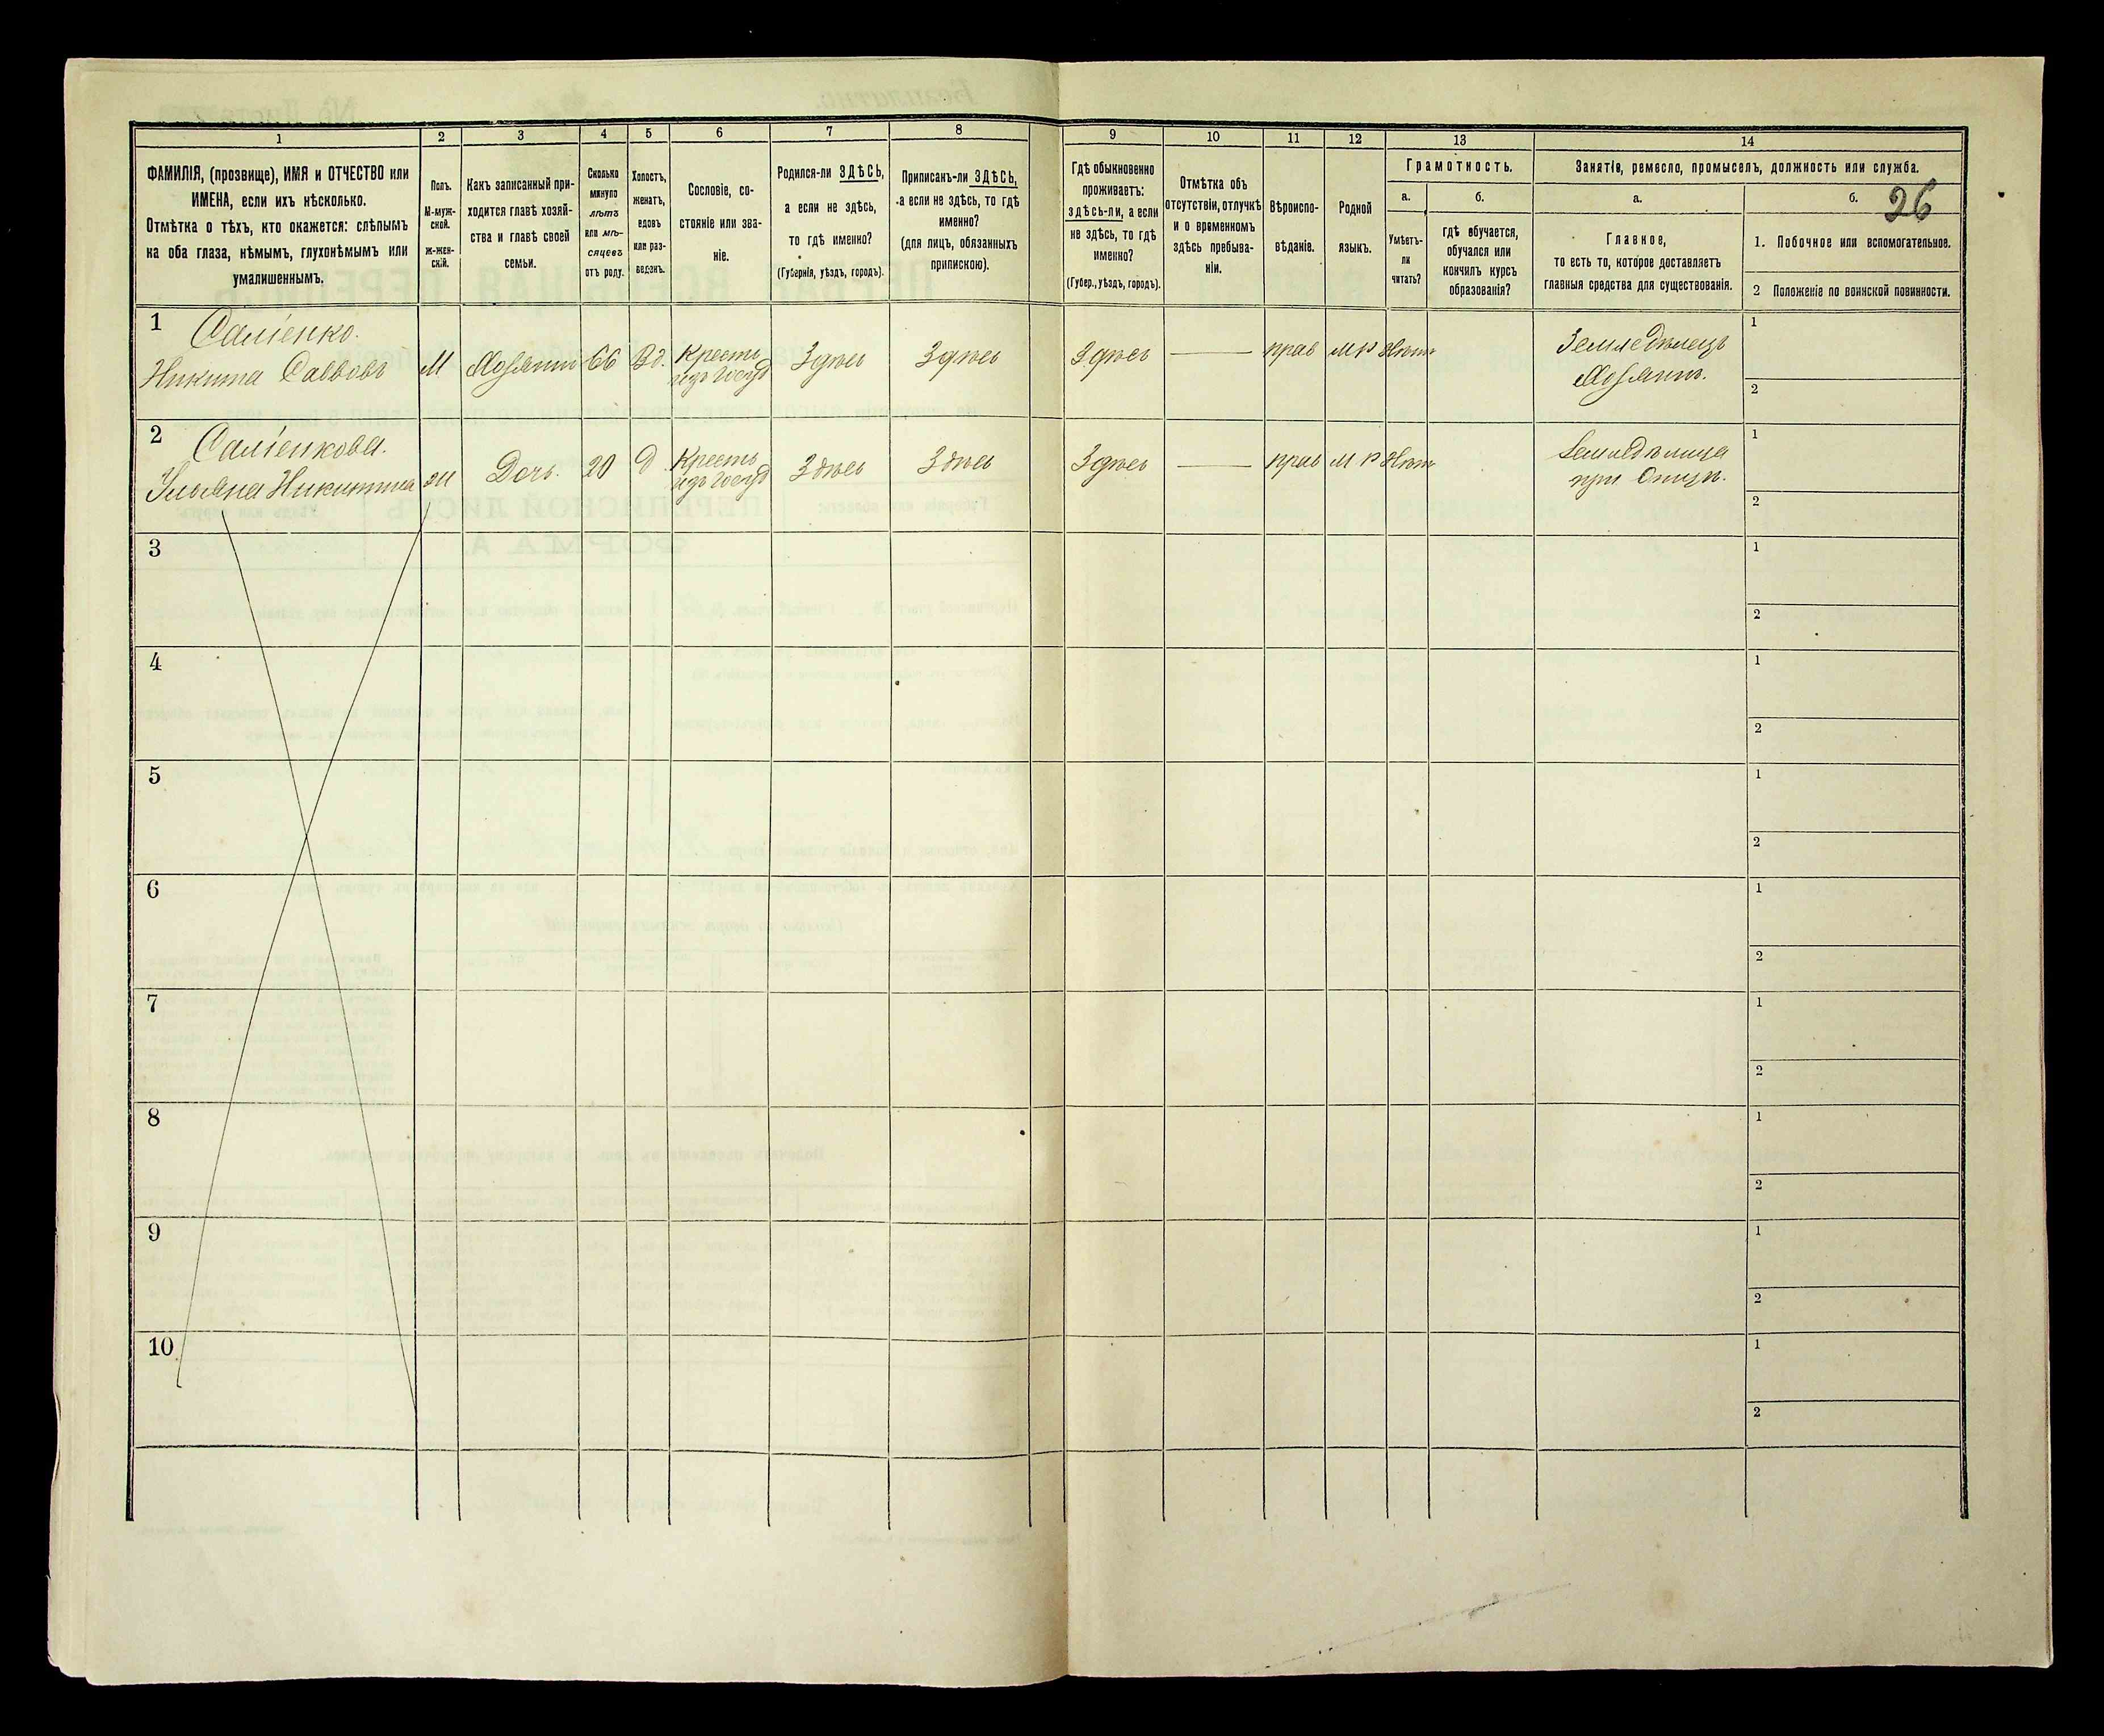 26
1
2
3
4
5
6
7
8
9
10
11
12
13
14
ФАМИЛІЯ, (прозвище), ИМЯ и ОТЧЕСТВО или
ИМЕНА, если ихъ нѣсколько.
Отмѣтка о тѣхъ, кто окажется: слѣпымъ
на оба глаза, нѣмымъ, глухонѣмымъ или
умалишеннымъ.
Полъ.
М-муж-
ской.
Ж-жен-
скій.
Какъ записанный при-
ходится главѣ хозяй-
ства и главѣ своей
семьи.
Сколько
минуло
лѣтъ
или мѣ-
сяцевъ
отъ роду.
Холостъ,
женатъ,
вдовъ
или раз-
веденъ.
Сословіе, со-
стояніе или зва-
ніе.
Родился-ли ЗДѢСЬ,
а если не здѣсь,
то гдѣ именно?
(Губернія, уѣздъ, городъ).
Приписанъ-ли ЗДѢСЬ,
а если не здѣсь, то гдѣ
именно?
(для лицъ, обязанныхъ
припискою).
Гдѣ обыкновенно
проживаетъ:
здѣсь-ли, а если
не здѣсь, то гдѣ
именно?
(Губер., уѣздъ, городъ).
Отмѣтка объ
отсутствіи, отлучкѣ
и о временномъ
здѣсь пребыва-
ніи.
Вѣроиспо-
вѣданіе.
Родной
языкъ.
Грамотность.
а.
Умѣетъ-
ли
читать?
б.
гдѣ обучается,
обучался или
кончилъ курсъ
образованія?
Занятіе, ремесло, промыселъ, должность или служба.
а.
Главное,
то есть то, которое доставляетъ
главныя средства для существованія.
б.
1. Побочное или вспомогательное.
2 Положеніе по воинской повинности.
1
Саліенко.
Никита Саввовъ
М
Хозяинъ
66
Вд.
Кресть
изъ Госуд
Здѣсь
Здѣсь
Здѣсь
прав
Мр
Нѣтъ
Земледѣлецъ
Хозяинъ.
1
2
2
Саліенкова.
Ульяна Никитина
Ж
Дочь.
20
Д
Кресть
изъ Госуд
Здѣсь
Здѣсь
Здѣсь
прав
М р
Нѣтъ
Земледѣлица
при Отцѣ.
1
2
3
1
2
4
1
2
5
1
2
6
1
2
7
1
2
8
1
2
9
1
2
10
1
2